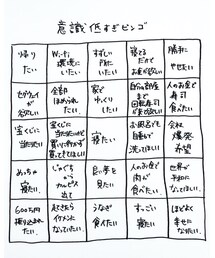 意識低すぎビンゴ
帰り
たい
Wi-Fi
環境に
いたい
すずしい
所に
いたい
寝てる
だけで
お金が欲しい
勝手に
やせたい
セグウェイ
が欲しい
全員に
ほめられ
たい
家で
ゆっくり
したい
自分の部屋
まで
回転寿司
が来て欲しい
人のお金で
寿司
食べたい
宝くじに
当たりたい
宝くじに
買ってきてほしい
寝
たい
お風呂も
自動で
洗ってほしい
会社
爆発
希望
めっちゃ
寝たい
じゃぐち
から
カルピス
出て
良い夢を
見たい
人のお金で
肉が
食べたい
世界が
平和に
なってほしい
600万円
振り込まれ
たい
イケメンに
なっていたい
うなぎ
食べたい
すっごい
寝たい
ほどよく
幸せに
なりたい